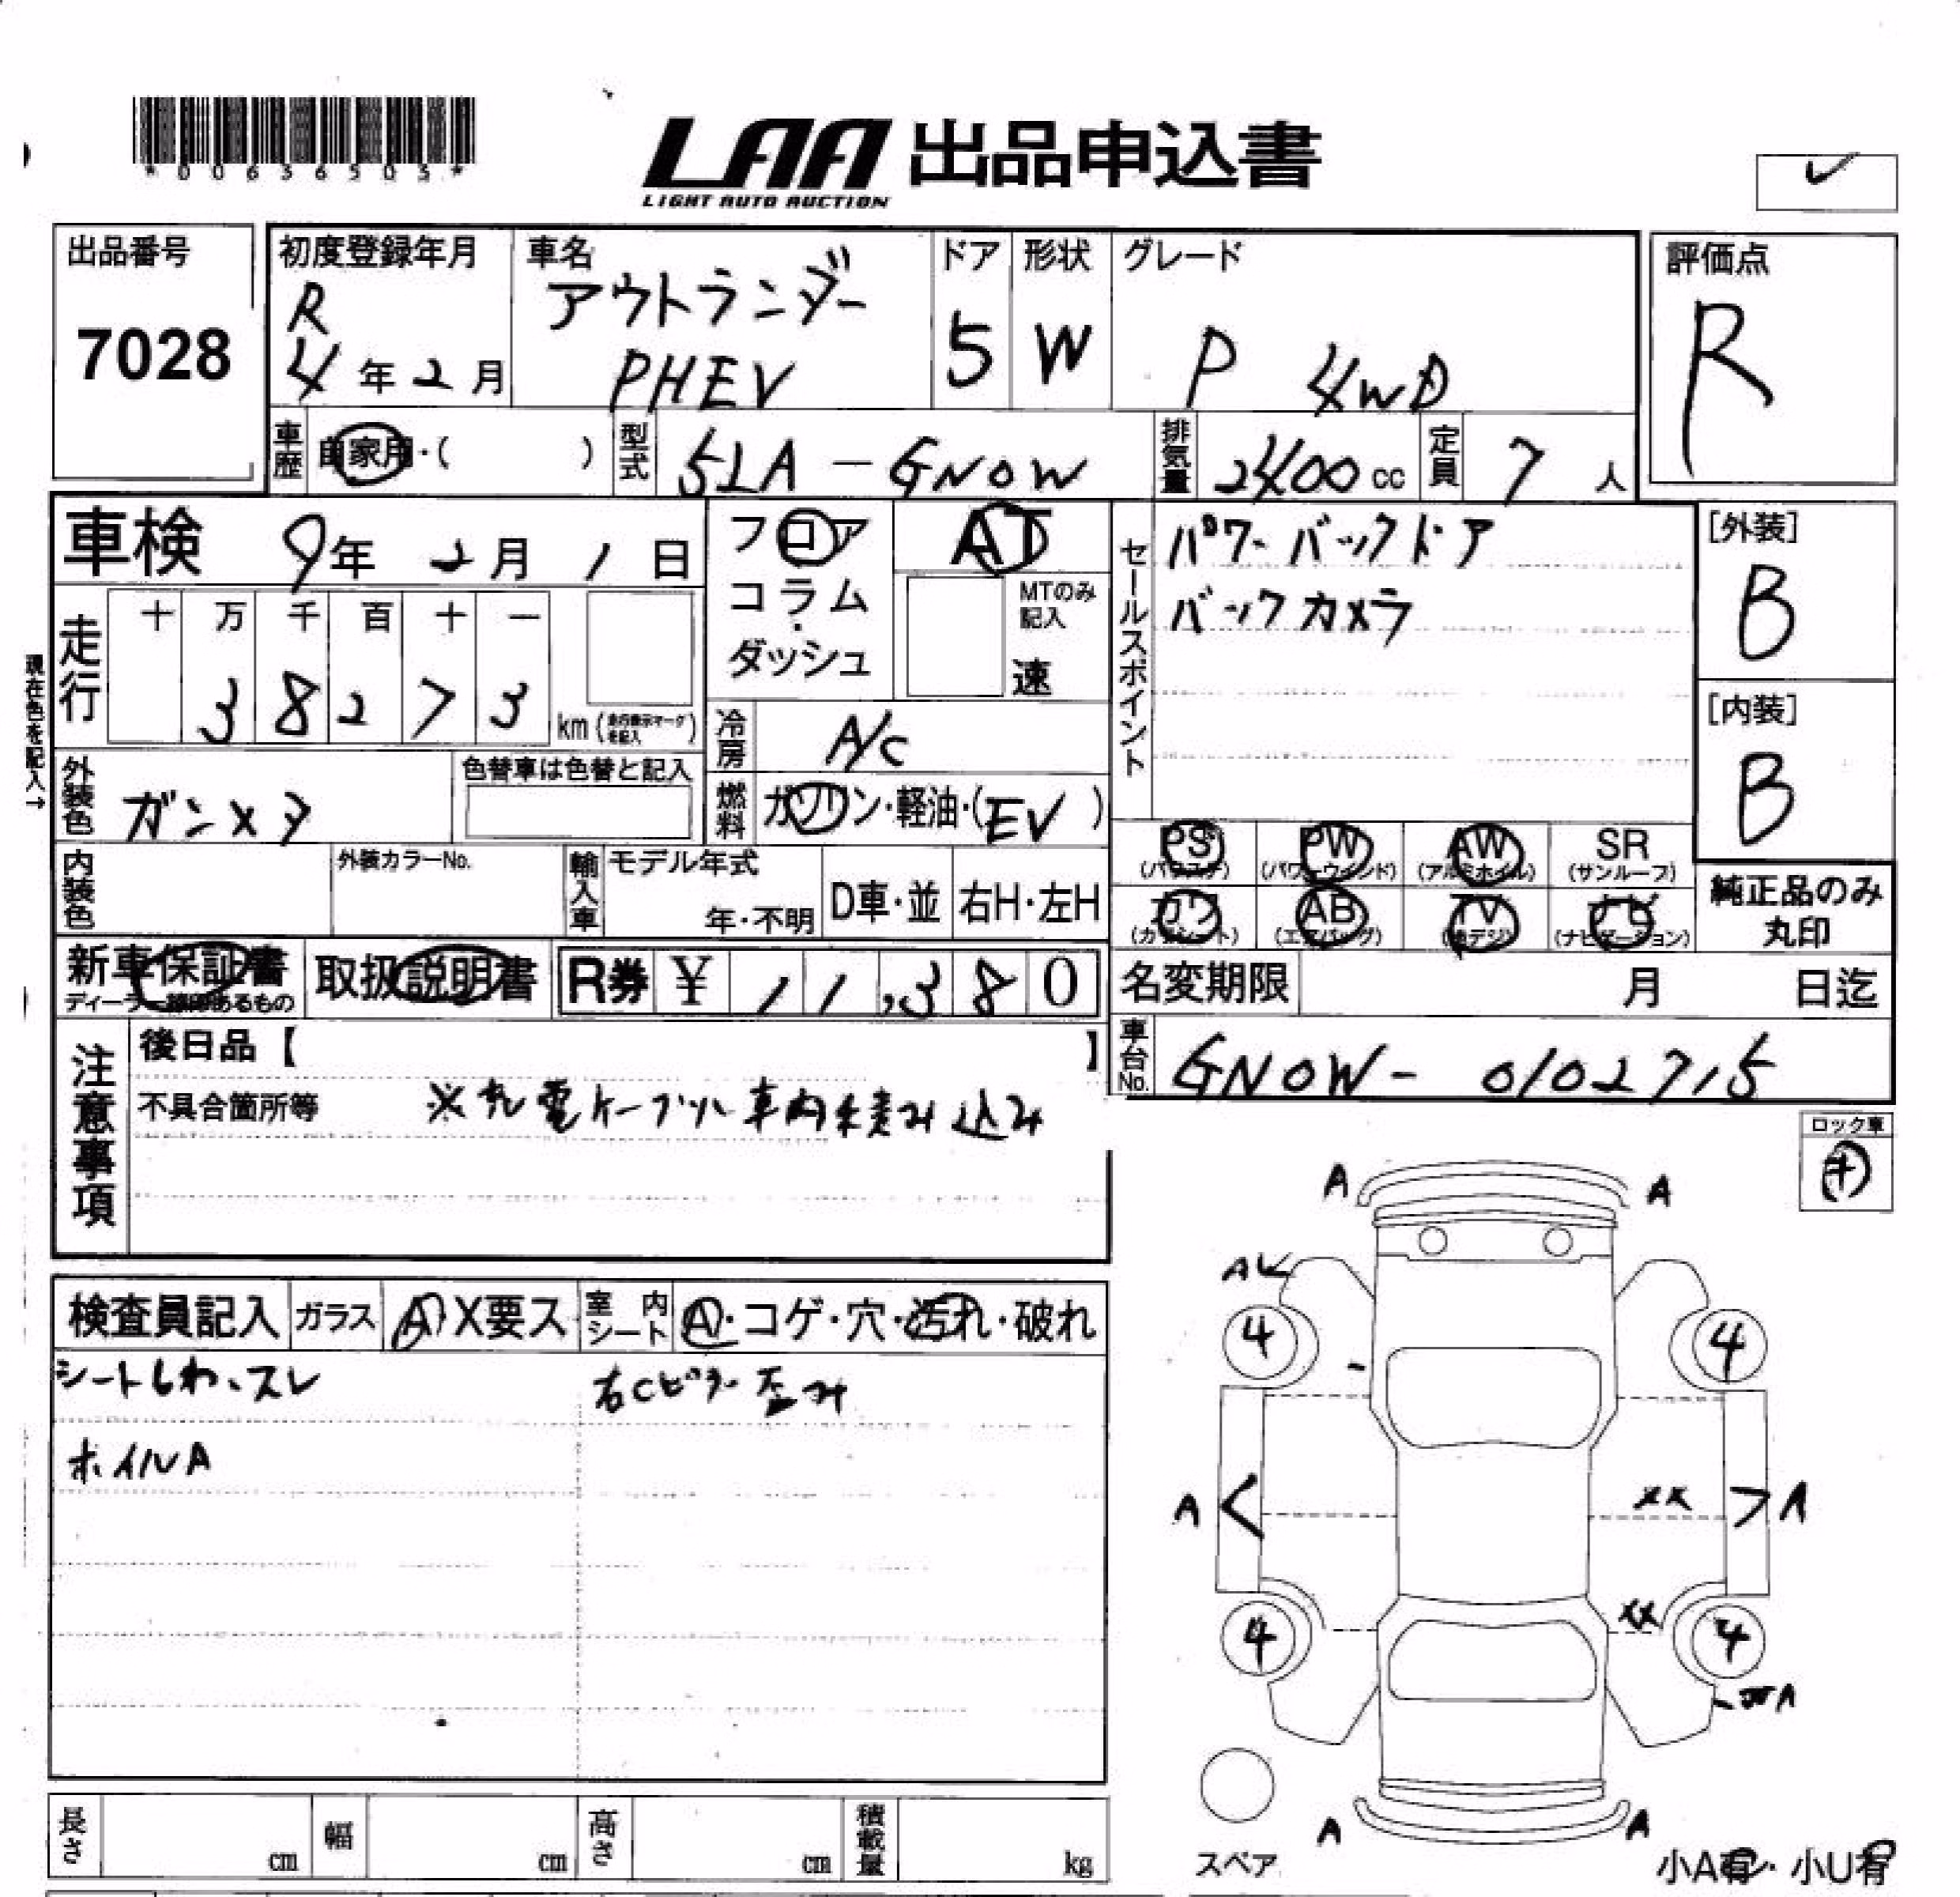 *00636505*
LAA 出品申込書
LIGHT AUTO AUCTION
✓
出品番号
7028
初度登録年月
R
4年2月
車名
アウトランダー
PHEV
ドア
5
形状
W
グレード
P 4WD
評価点
R
車歴
自家用・( )
型式
5LA-GN0W
排気量
2400cc
定員
7人
車検 9年2月1日
フロア
コラム
・
ダッシュ
AT
MTのみ
記入
速
セールスポイント
パワーバックドア
バックカメラ
[外装]
B
[内装]
B
走行
十 万 千 百 十 一
3 8 2 7 3
km
現在色を記入→
冷房
A/C
外装色
ガンメタ
色替車は色替と記入
燃料
ガソリン・軽油・(EV)
PS
(パワステ)
PW
(パワーウィンド)
AW
(アルミホイル)
SR
(サンルーフ)
内装色
外装カラーNo.
輸入車
モデル年式
年・不明
D車・並
右H・左H
カワ
(カワシート)
AB
(エアバッグ)
TV
(地デジ)
ナビ
(ナビゲーション)
純正品のみ
丸印
新車保証書
ディーラー捺印あるもの
取扱説明書
R券 ¥11,380
名変期限 月 日迄
注意事項
後日品【 】
車台No.
GN0W-0102715
不具合箇所等 ※充電ケーブル車内積み込み
ロック車
A A
A
4 4
検査員記入
ガラス
A X要ス
室内シート
A・コゲ・穴・汚れ・破れ
シートしわ、スレ
右Cピラー歪み
ホイルA
A < XX > A
XX
4 4
A
A A
長さ cm
幅 cm
高さ cm
積載量 kg
スペア
小A有・小U有